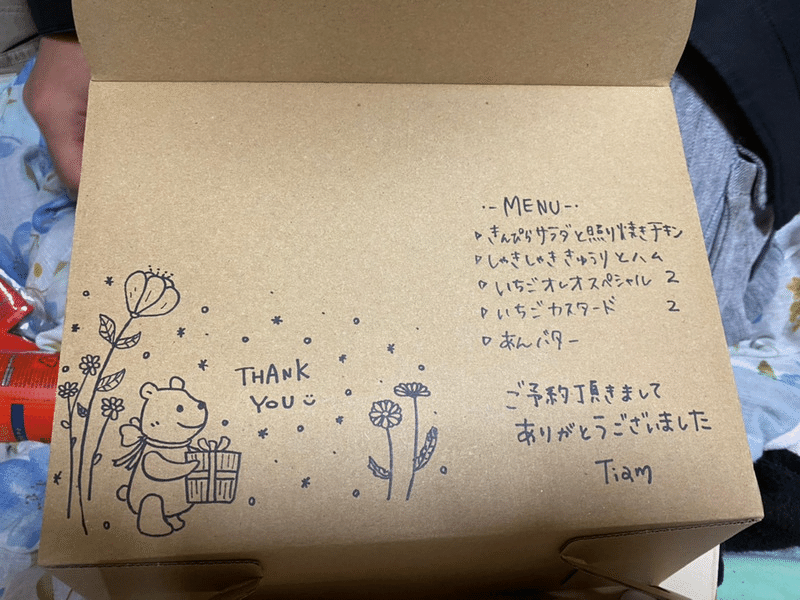 THANK
YOU
-MENU-
きんぴらサラダと照り焼きチキン
しゃきしゃききゅうりとハム
いちごオレオスペシャル 2
いちごカスタード 2
あんバター
ご予約頂きまして
ありがとうございました
Tiam